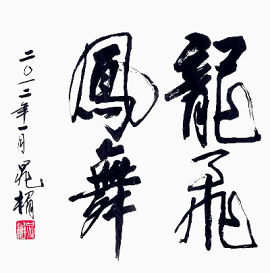 龍飛
鳳舞
二〇一二年一月